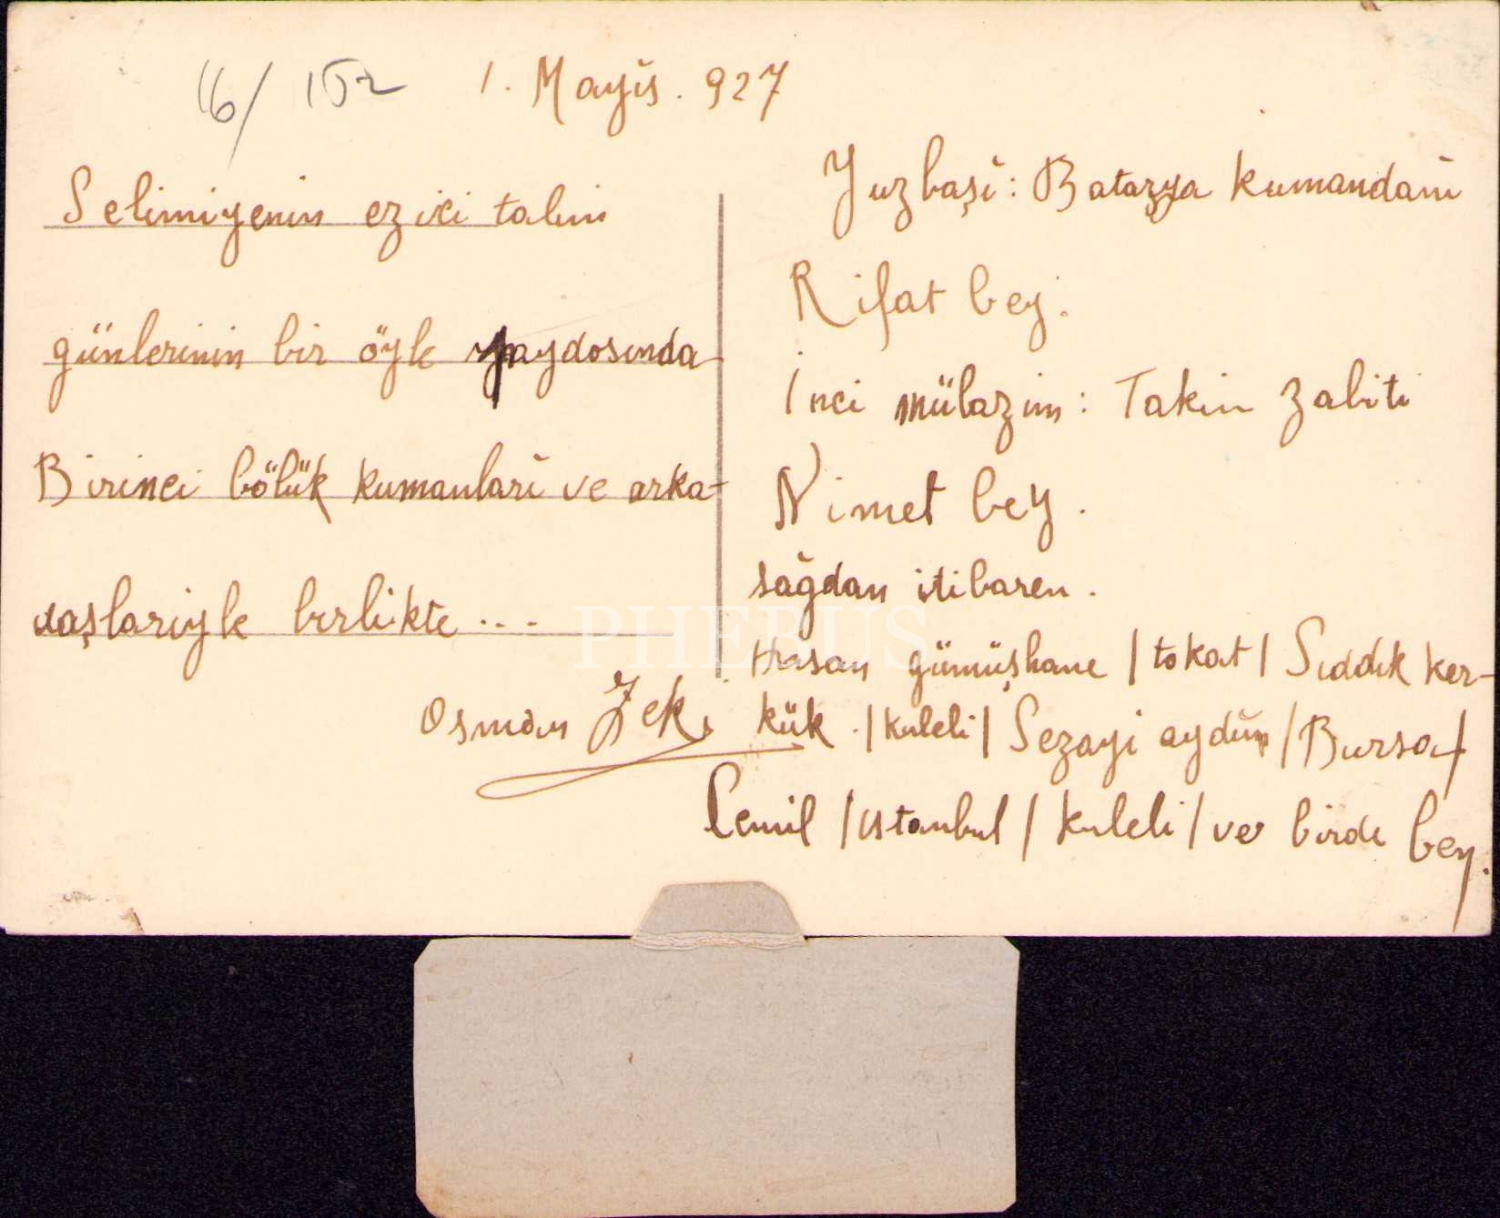 16/152
1. Mayis. 927
Selimiyenin ezici talim
günlerinin bir öyle paydosunda
Birinci bölük kumanlari ve arka-
daşlariyle birlikte ...
Osman Zeki
Yuzbaşi: Batarya kumandani
Rifat bey.
1nci mülazim: Takim zabiti
Nimet bey.
sağdan itibaren.
Hasan gümüşhane / tokat / Sıddık ker-
kük . / kuleli / Sezayi aydın / Bursa /
Cemil / ıstanbul / kuleli / ve birde bey.
PHEBUS